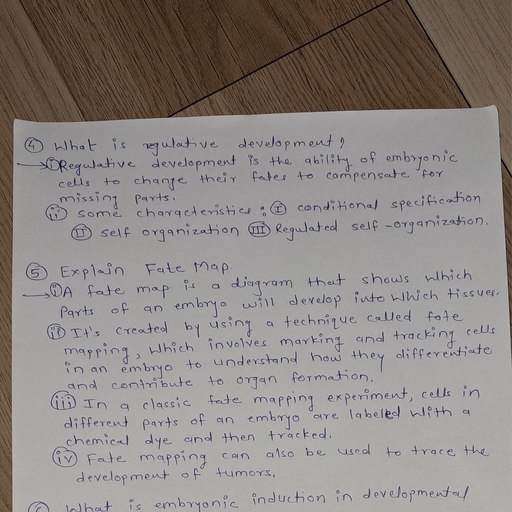 ④ What is regulative development?
→ ⓘ Regulative development is the ability of embryonic
cells to change their fates to compensate for
missing parts.
ⓘⓘ some characteristics : Ⓘ conditional specification
ⒾⒾ self organization ⒾⒾⒾ Regulated self-organization.
⑤ Explain Fate Map.
→ ⓘ A fate map is a diagram that shows which
parts of an embryo will develop into which tissues.
ⓘⓘ It's created by using a technique called fate
mapping, which involves marking and tracking cells
in an embryo to understand how they differentiate
and contribute to organ formation.
ⓘⓘⓘ In a classic fate mapping experiment, cells in
different parts of an embryo are labeled with a
chemical dye and then tracked.
ⓘⓥ Fate mapping can also be used to trace the
development of tumors.
What is embryonic induction in developmental